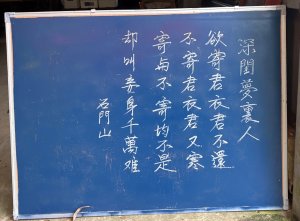 深閨夢裏人
欲寄君衣君不還
不寄君衣君又寒
寄与不寄均不是
却叫妾身千萬难
石門山